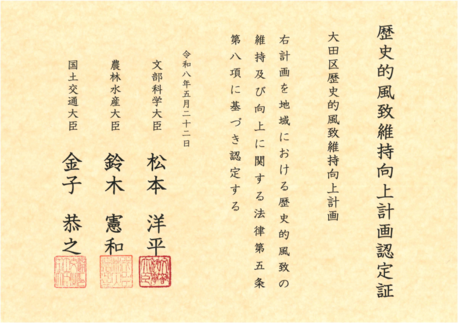 歴史的風致維持向上計画認定証
大田区歴史的風致維持向上計画
右計画を地域における歴史的風致の
維持及び向上に関する法律第五条
第八項に基づき認定する
令和八年五月二十二日
文部科学大臣 松本 洋平
農林水産大臣 鈴木 憲和
国土交通大臣 金子 恭之